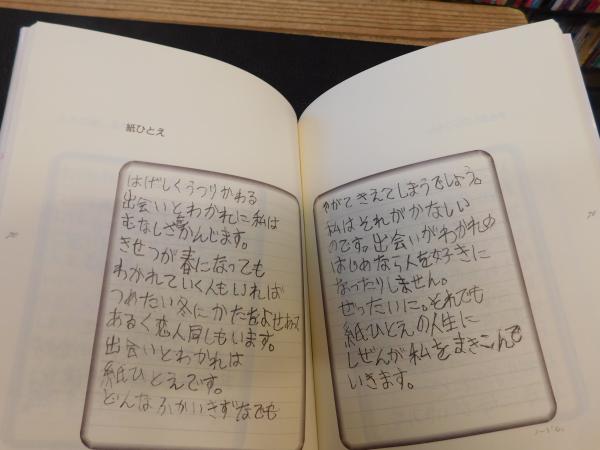 紙ひとえ
はげしくうつりかわる
出会いとわかれに私は
むなしさかんじます。
きせつが春になっても
わかれていく人もいれば
つめたい冬にかたをよせあって
あるく恋人同しもいます。
出会いとわかれは
紙ひとえです。
どんなふかいきずなでも
やがてきえてしまうでしょう。
私はそれがかなしい
のです。出会いがわかれの
はじめなら人を好きに
なったりしません。
ぜったいに。それでも
紙ひとえの人生に
しぜんが私をまきこんで
いきます。